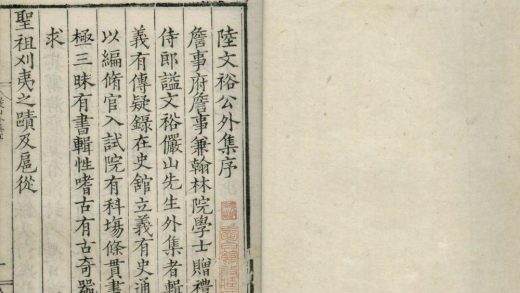 陸文裕公外集序
詹事府詹事兼翰林院學士贈禮
侍郎謚文裕儼山先生外集者輯
義有傳疑錄在史舘立義有史通
以編脩官入試院有科塲條貫書
極三昧有書輯性嗜古有古奇器
求
聖祖刈夷之蹟及扈從